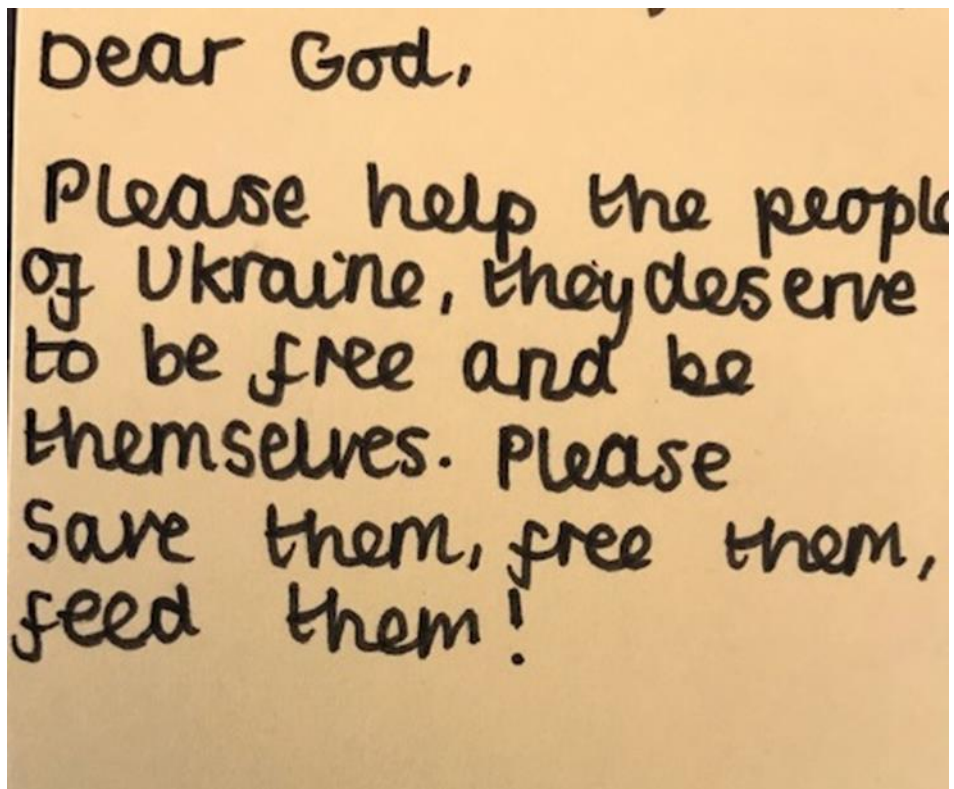 Dear God,
Please help the people
of Ukraine, they deserve
to be free and be
themselves. Please
Save them, free them,
feed them!